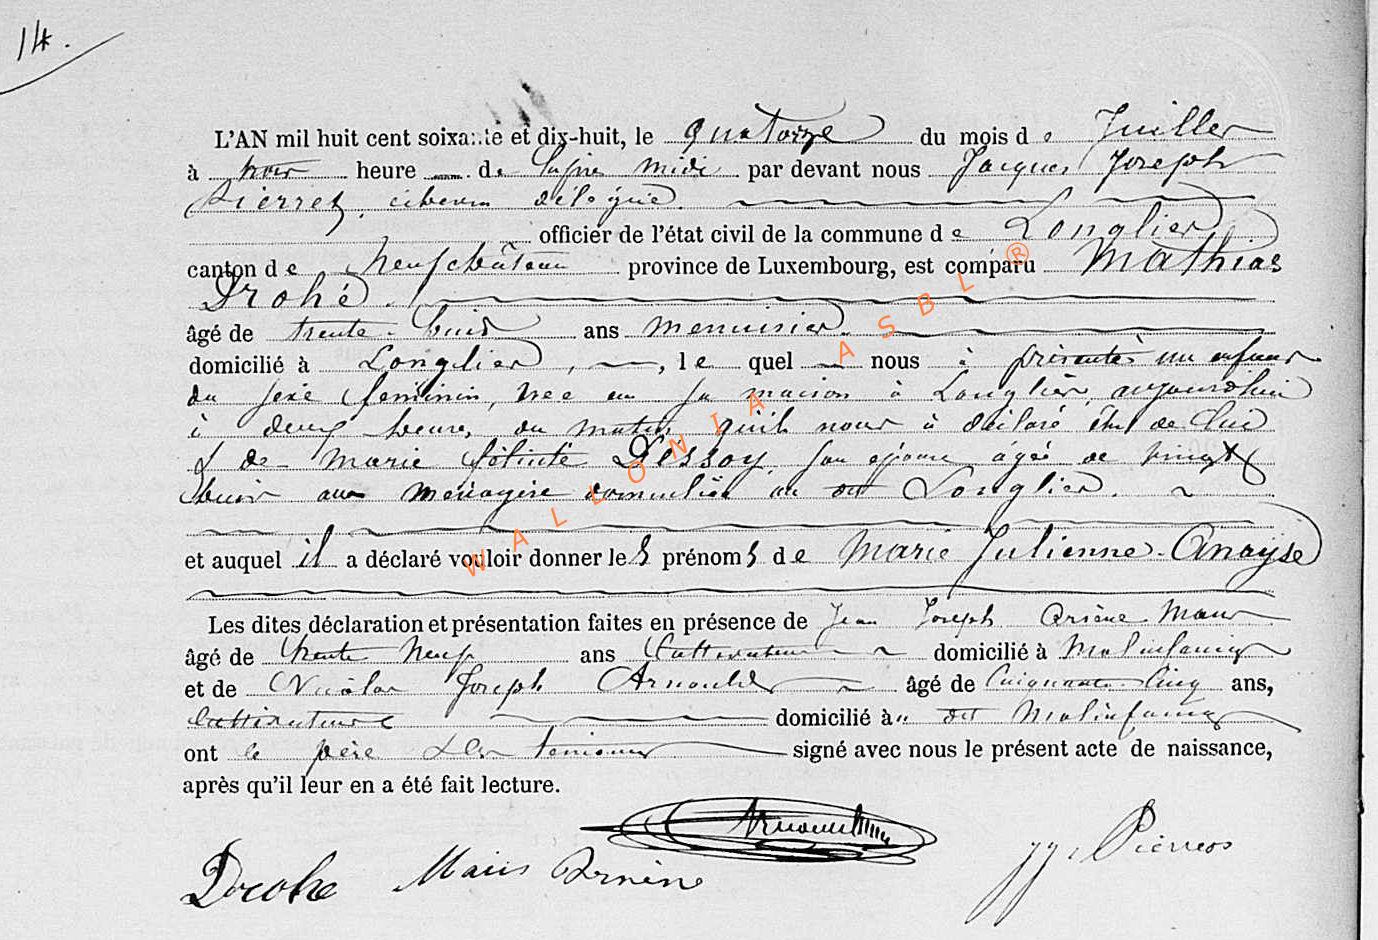 14.
L'AN mil huit cent soixante et dix-huit, le quatorze du mois de Juillet
à trois heure de l'après midi par devant nous Jacques Joseph
Pierret, échevin délégué.
officier de l'état civil de la commune de Longlier
canton de Neufchâteau province de Luxembourg, est comparu Mathias
Drohé.
âgé de trente-huit ans menuisier.
domicilié à Longlier, le quel nous à présenté un enfant
du sexe féminin, née en sa maison à Longlier, aujourd'hui
à deux heures du matin qu'il nous à déclaré être de lui
& de Marie Dessoy, son épouse âgée de vingt
huit ans ménagère domiciliée au dit Longlier.
et auquel il a déclaré vouloir donner les prénoms de Marie Julienne-Anayse
Les dites déclaration et présentation faites en présence de Jean Joseph Arsène Maus
âgé de trente neuf ans Cultivateur domicilié à Molinfaing
et de Nicolas Joseph Arnould âgé de Cinquante-Cinq ans,
Cultivateur domicilié à u dit Molinfaing
ont le père & les témoins signé avec nous le présent acte de naissance,
après qu'il leur en a été fait lecture.
Drohe Maus Arsène JJ Pierret
WALLONIA ASBL ®